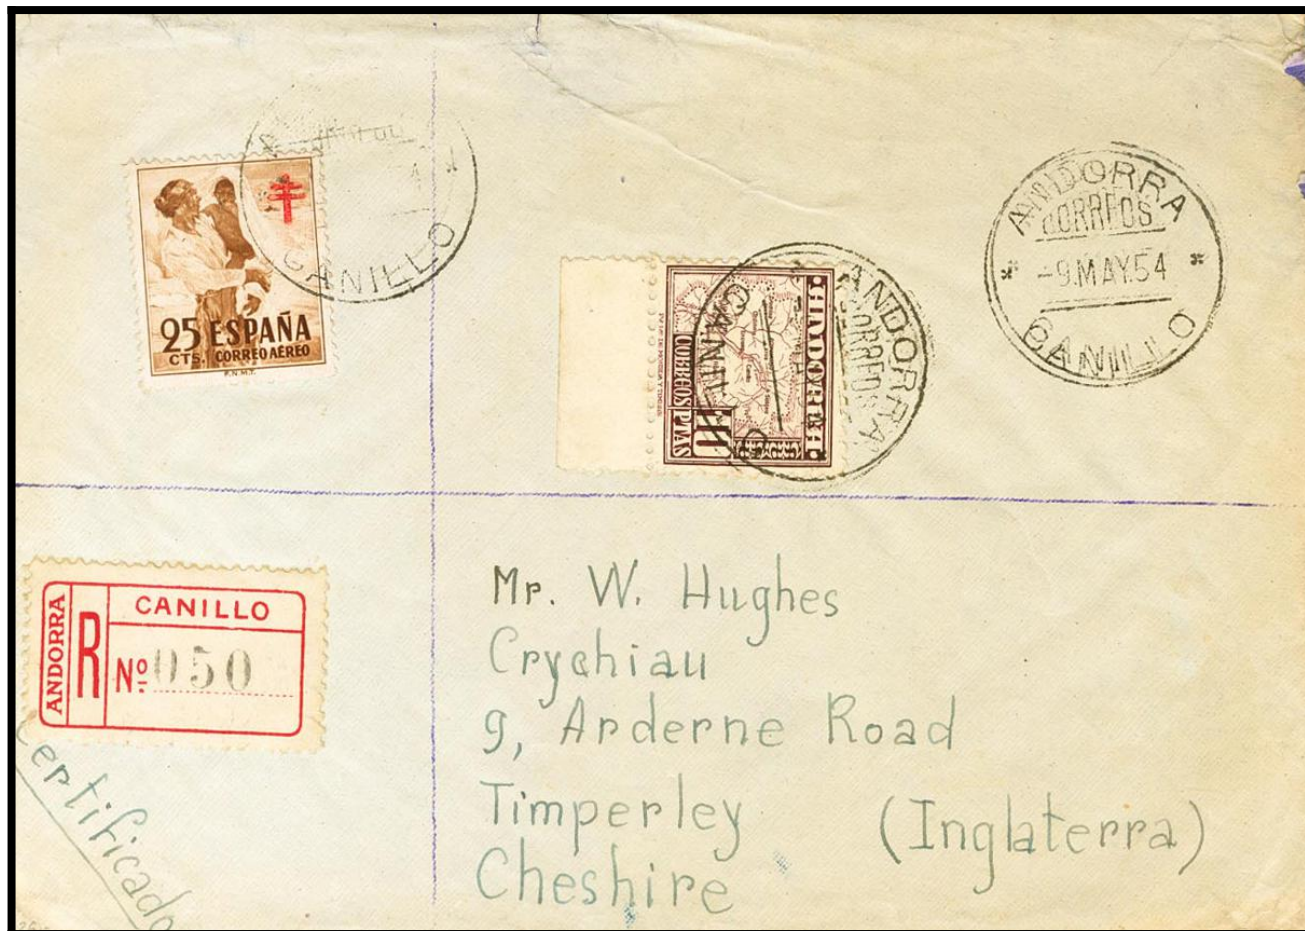 CANILLO
25 ESPAÑA
CTS. CORREO AÉREO
F.N.M.T.
ANDORRA
CORREOS
CANILLO
CORREOS
PTAS
ANDORRA
CORREOS
-9.MAY.54
CANILLO
ANDORRA
R
CANILLO
Nº 050
Certificado
Mr. W. Hughes
Crychiau
9, Arderne Road
Timperley (Inglaterra)
Cheshire